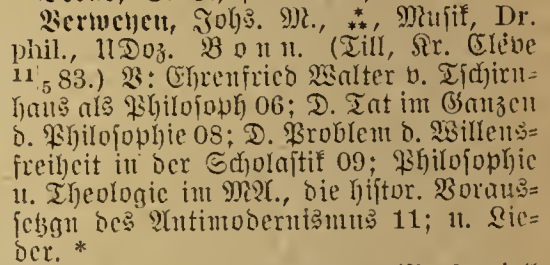 Verweyen, Johs. M., ⁂, Musik, Dr.
phil., UDoz. Bonn. (Till, Kr. Cleve
11/5 83.) V: Ehrenfried Walter v. Tschirn-
haus als Philosoph 06; D. Tat im Ganzen
d. Philosophie 08; D. Problem d. Willens-
freiheit in der Scholastik 09; Philosophie
u. Theologie im MA., die histor. Voraus-
setzgn des Antimodernismus 11; u. Lie-
der. *